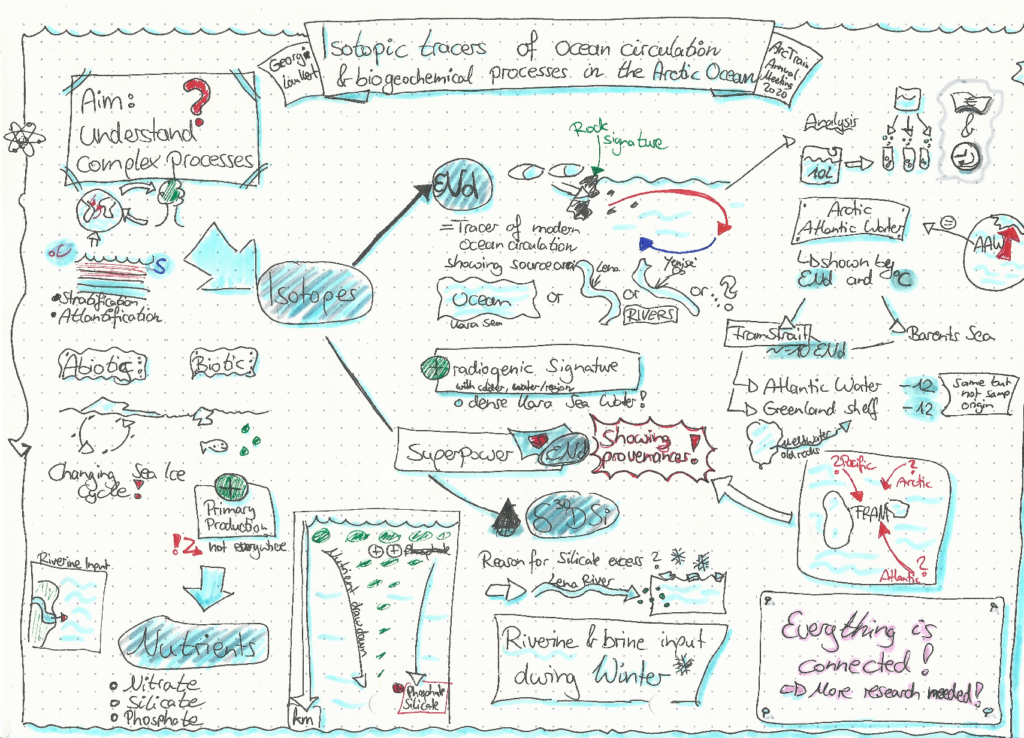 Isotopic tracers of ocean circulation
& biogeochemical processes in the Arctic Ocean
Georgi
Laukert
ArcTrain
Annual
Meeting
2020
Aim:
Understand
complex processes
?
°C
S
• Stratification
• Atlantification
Abiotic:
Biotic:
Changing Sea Ice
Cycle!
+
Primary
Production
!? not everywhere
Riverine Input
Nutrients
Nitrate
Silicate
Phosphate
Isotopes
εNd
Rock
Signature
=Tracer of modern
ocean circulation
showing source area
Ocean
Kara Sea
or
Lena
or
Yenisei
Ob
RIVERS
or...?
+ radiogenic Signature
dense Kara Sea Water!
Superpower
εNd
Showing
provenances!
δ30DSi
Reason for Silicate excess?
Lena River
Riverine & brine input
during Winter
Nutrient drawdown
Phosphate
Phosphate
Silicate
km
Analysis
10L
Arctic
Atlantic Water
AAW
shown by
εNd and °C
FramStrait
~-10 εNd
Barents Sea
Atlantic Water -12
Greenland shelf -12
Same but
not same
origin
meltwater
old rocks
? Pacific
?
Arctic
FRAM
?
Atlantic
Everything is
connected!
More research needed!